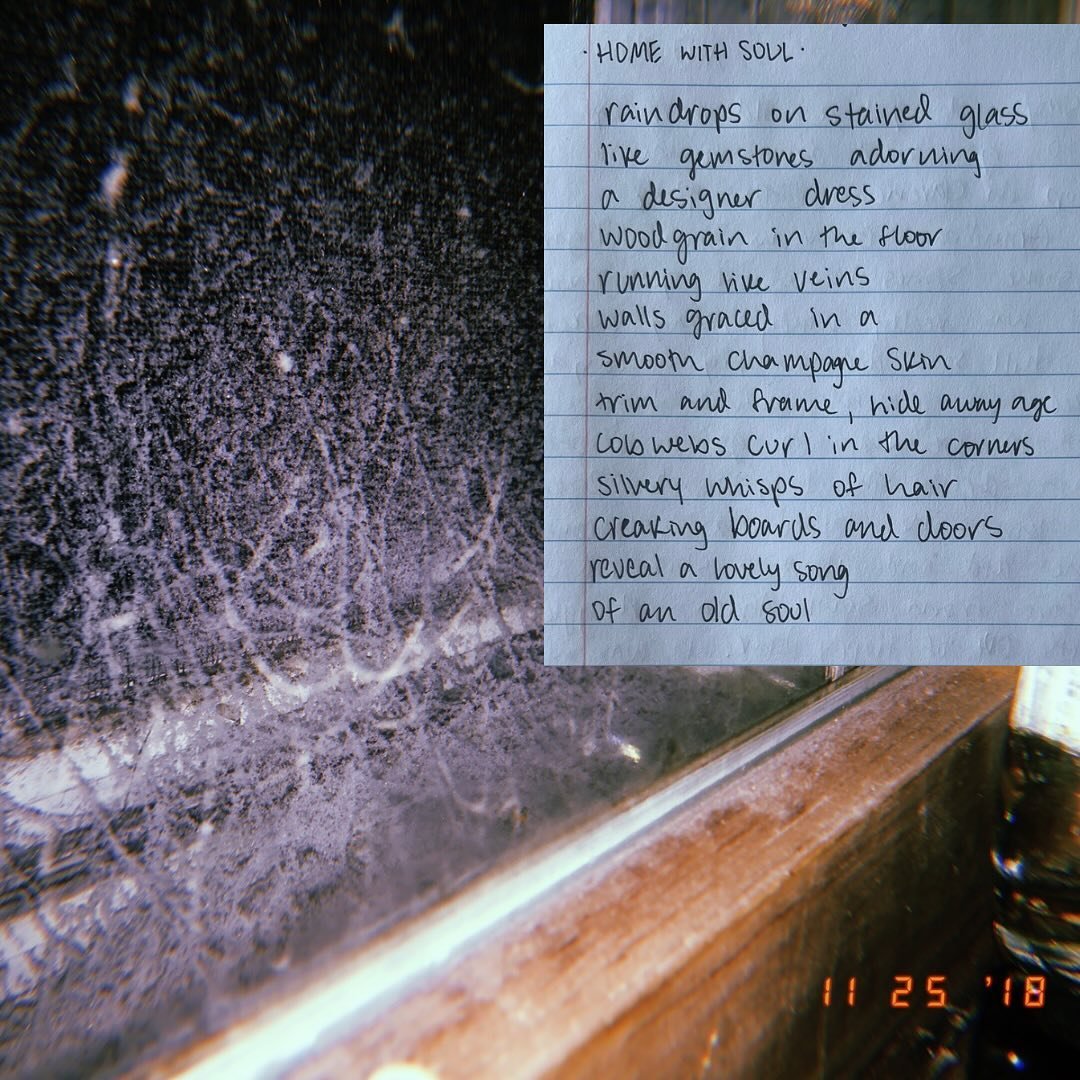 · HOME WITH SOUL ·
raindrops on stained glass
like gemstones adorning
a designer dress
woodgrain in the floor
running like veins
walls graced in a
smooth champagne skin
trim and frame, hide away age
cobwebs curl in the corners
silvery whisps of hair
creaking boards and doors
reveal a lovely song
of an old soul
11 25 '18